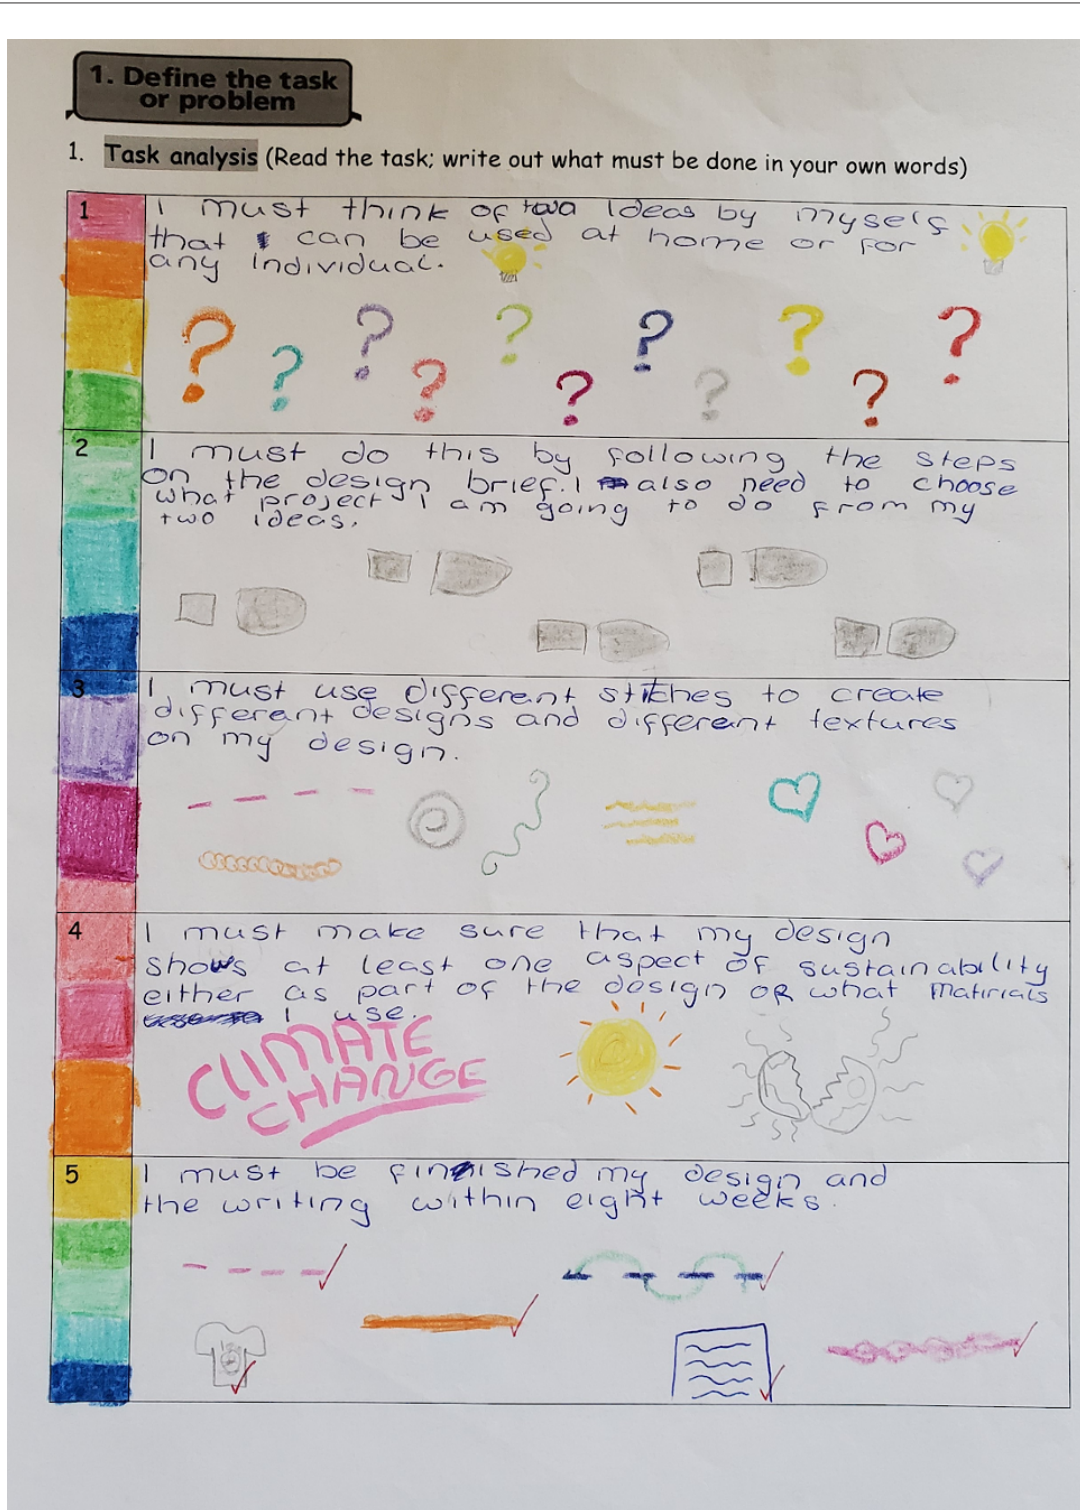 1. Define the task
or problem
1. Task analysis (Read the task; write out what must be done in your own words)
1
I must think of two ideas by myself
that I can be used at home or for
any individual.
? ? ? ? ? ? ? ? ? ? ?
2
I must do this by following the steps
on the design brief. I also need to choose
what project I am going to do from my
two ideas.
3
I must use different stitches to create
different designs and different textures
on my design.
4
I must make sure that my design
shows at least one aspect of sustainability
either as part of the design OR what matirials
I use.
CLIMATE
CHANGE
5
I must be finished my design and
the writing within eight weeks.